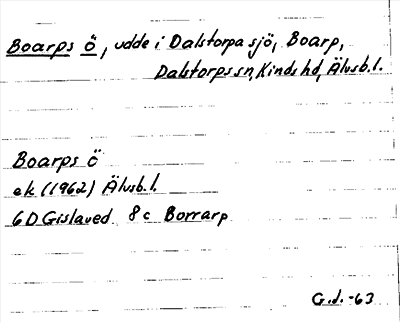 Boarps ö, udde i Dalstorpa sjö, Boarp,
Dalstorps sn, Kinds hd, Älvsb. l.
Boarps ö
ek (1962) Älvsb. l.
6D Gislaved 8c Borrarp
G.J. -63